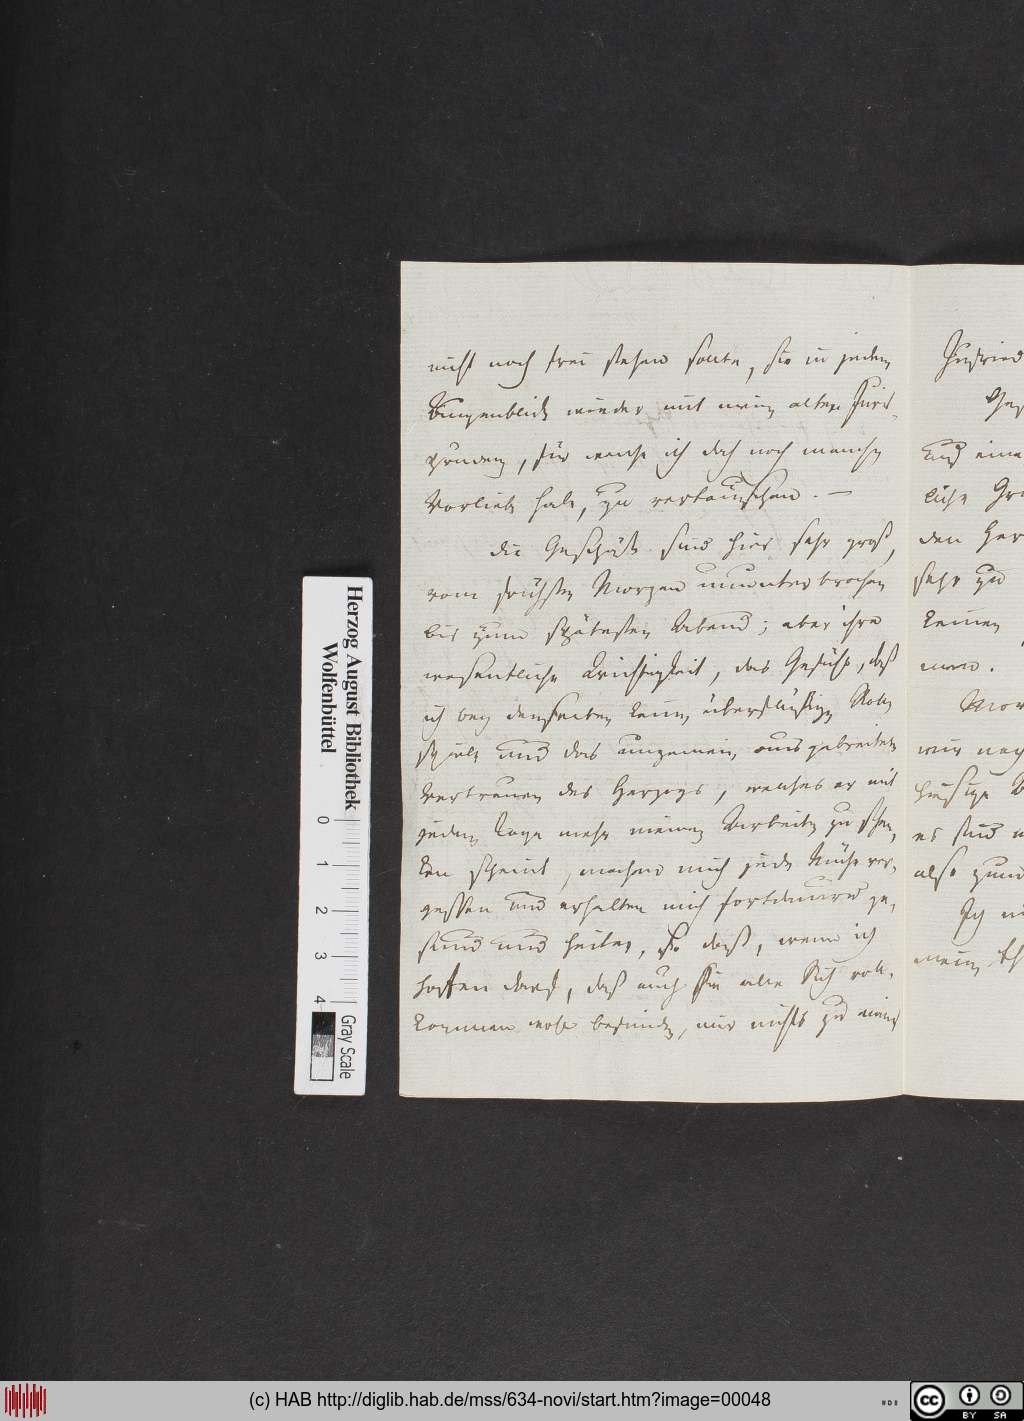 nicht noch frei stehen sollte, sie in jedem
Augenblick wieder mit meiner alten Juris-
prudenz, für welche ich doch noch manche
Vorliebe habe, zu vertauschen. —
Die Geschäfte sind hier sehr groß,
vom frühesten Morgen ununterbrochen
bis zum spätesten Abend; aber ihre
wesentliche Wichtigkeit, das Gefühl, daß
ich bey denselben keine überflüßige Rolle
spiele und das ungemein ausgebreitete
Vertrauen des Herzogs, welches er mit
jedem Tage mehr meinen Arbeiten zu schen-
ken scheint, machen mich jede Mühe ver-
gessen und erhalten mich fortdaurend ge-
sund und heiter, so daß, wenn ich
hoffen darf, daß auch Sie alle Sich voll-
kommen wohl befinden, mir nichts zu meiner
Zufried
und eine
den Her
sehr zu
keinen
men.
wir nach
es sind
also zum
Ich
Herzog August Bibliothek
Wolfenbüttel
0 1 2 3 4
Gray Scale
(c) HAB http://diglib.hab.de/mss/634-novi/start.htm?image=00048
cc BY SA